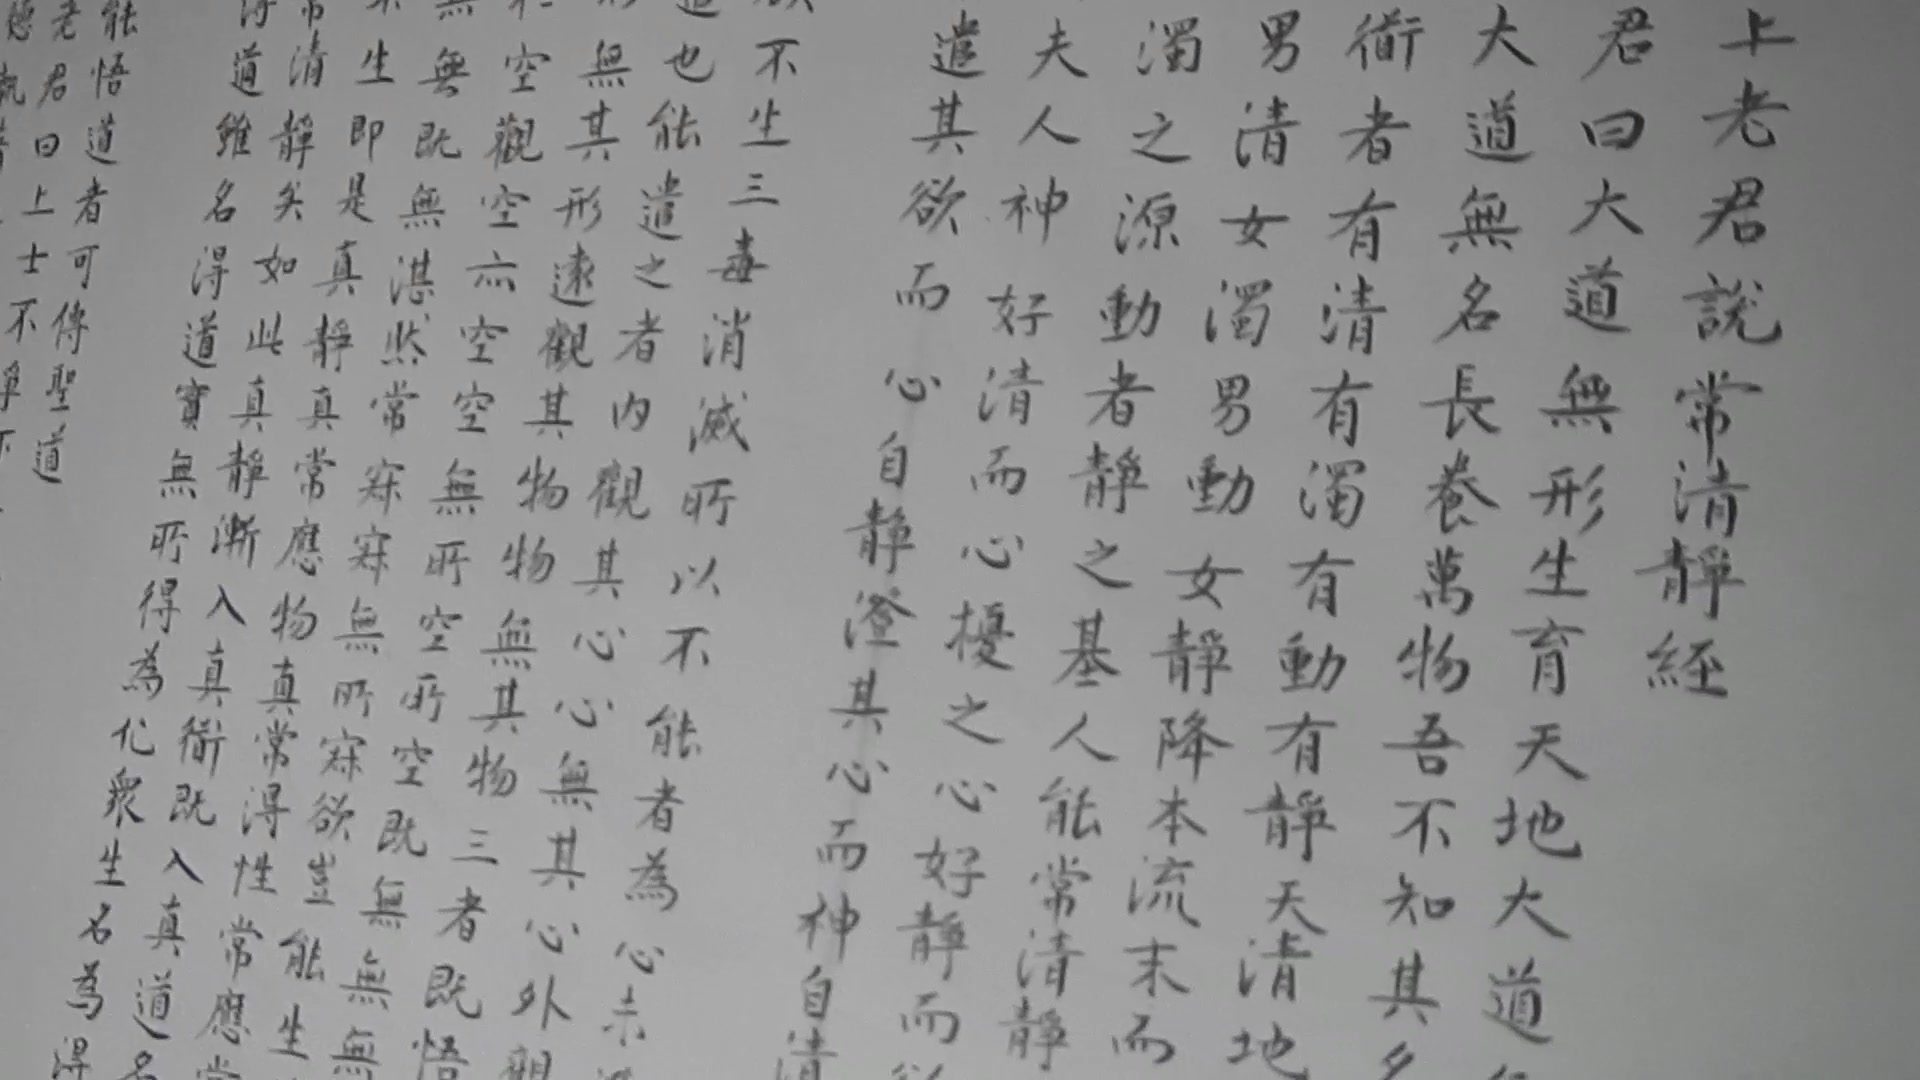 上老君說常清靜經
君曰大道無形生育天地大道
大道無名長養萬物吾不知其名
衜者有清有濁有動有靜天清地
男清女濁男動女靜降本流末而
濁之源動者靜之基人能常清靜
夫人神好清而心擾之心好靜而欲
遣其欲而心自靜澄其心而神自清
欲不生三毒消滅所以不能者為心未澄
遣也能遣之者內觀其心心無其心外觀
形無其形遠觀其物物無其物三者既悟
空觀空亦空空無所空所空既無
無無既無湛然常寂寂無所寂欲豈能生
不生即是真靜真常應物真常得性常應常
常清靜矣如此真靜漸入真衜既入真道名
得道雖名得道實無所得為化眾生名為得
能悟道者可傳聖道
老君曰上士不爭下
德執著